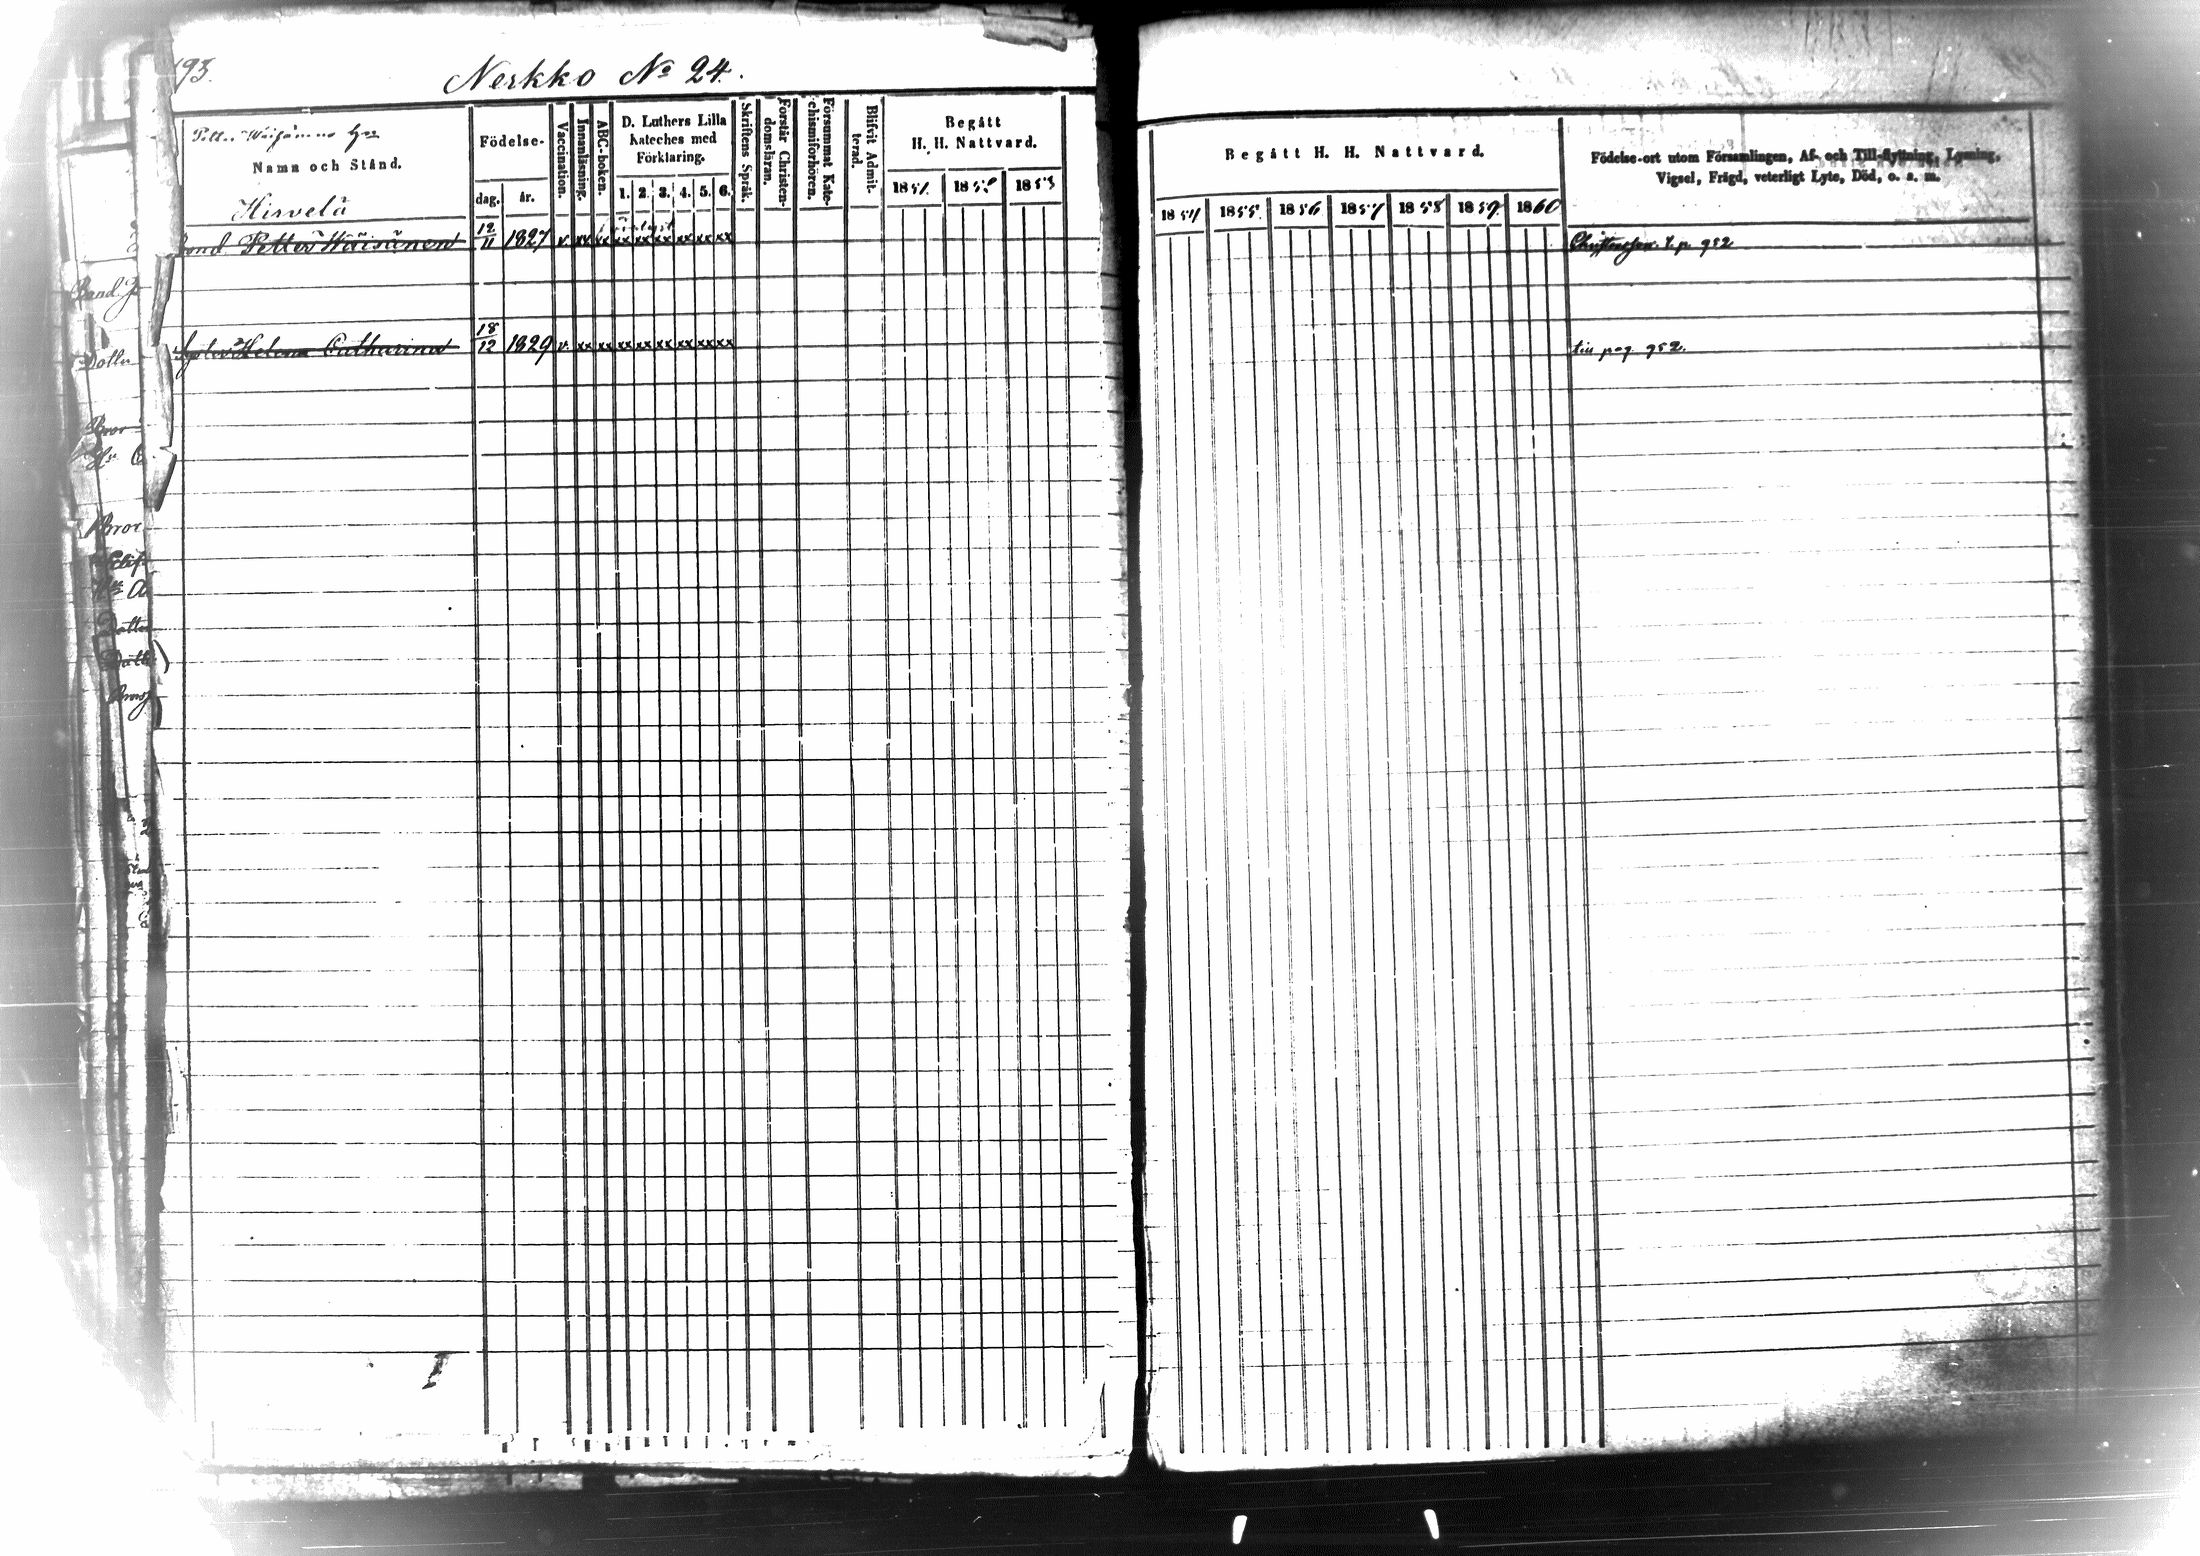 193.
Nerkko No 24.
Nama och Stånd.
Hirvelä
Födelse-
dag. år.
Vaccination.
Innanläsning.
ABC-boken.
D. Luthers Lilla
Kateches med
Förklaring.
1. 2. 3. 4. 5. 6.
Skriftens Språk.
Förstår Christen-
domsläran.
Försummat Kate-
chismiförhören.
Blifvit Admit-
terad.
Begått
H. H. Nattvard.
1851. 1852 1853
Bond. Petter Wäisänen 12/11 1827 v xx xx xx xx xx xx xx xx
Syster Helena Catharina 18/12 1829 v xx xx xx xx xx xx xx xx
Bond
Dotter
Bror
Hu
Bror
Hu A
Dotter
Dott
Begått H. H. Nattvard.
1854 1855. 1856 1857 1858 1859. 1860
Födelse-ort utom Församlingen, Af- och Till-flyttning, Lysning,
Vigsel, Frägd, veterligt Lyte, Död, o. s. m.
p. 952
till pag. 952.